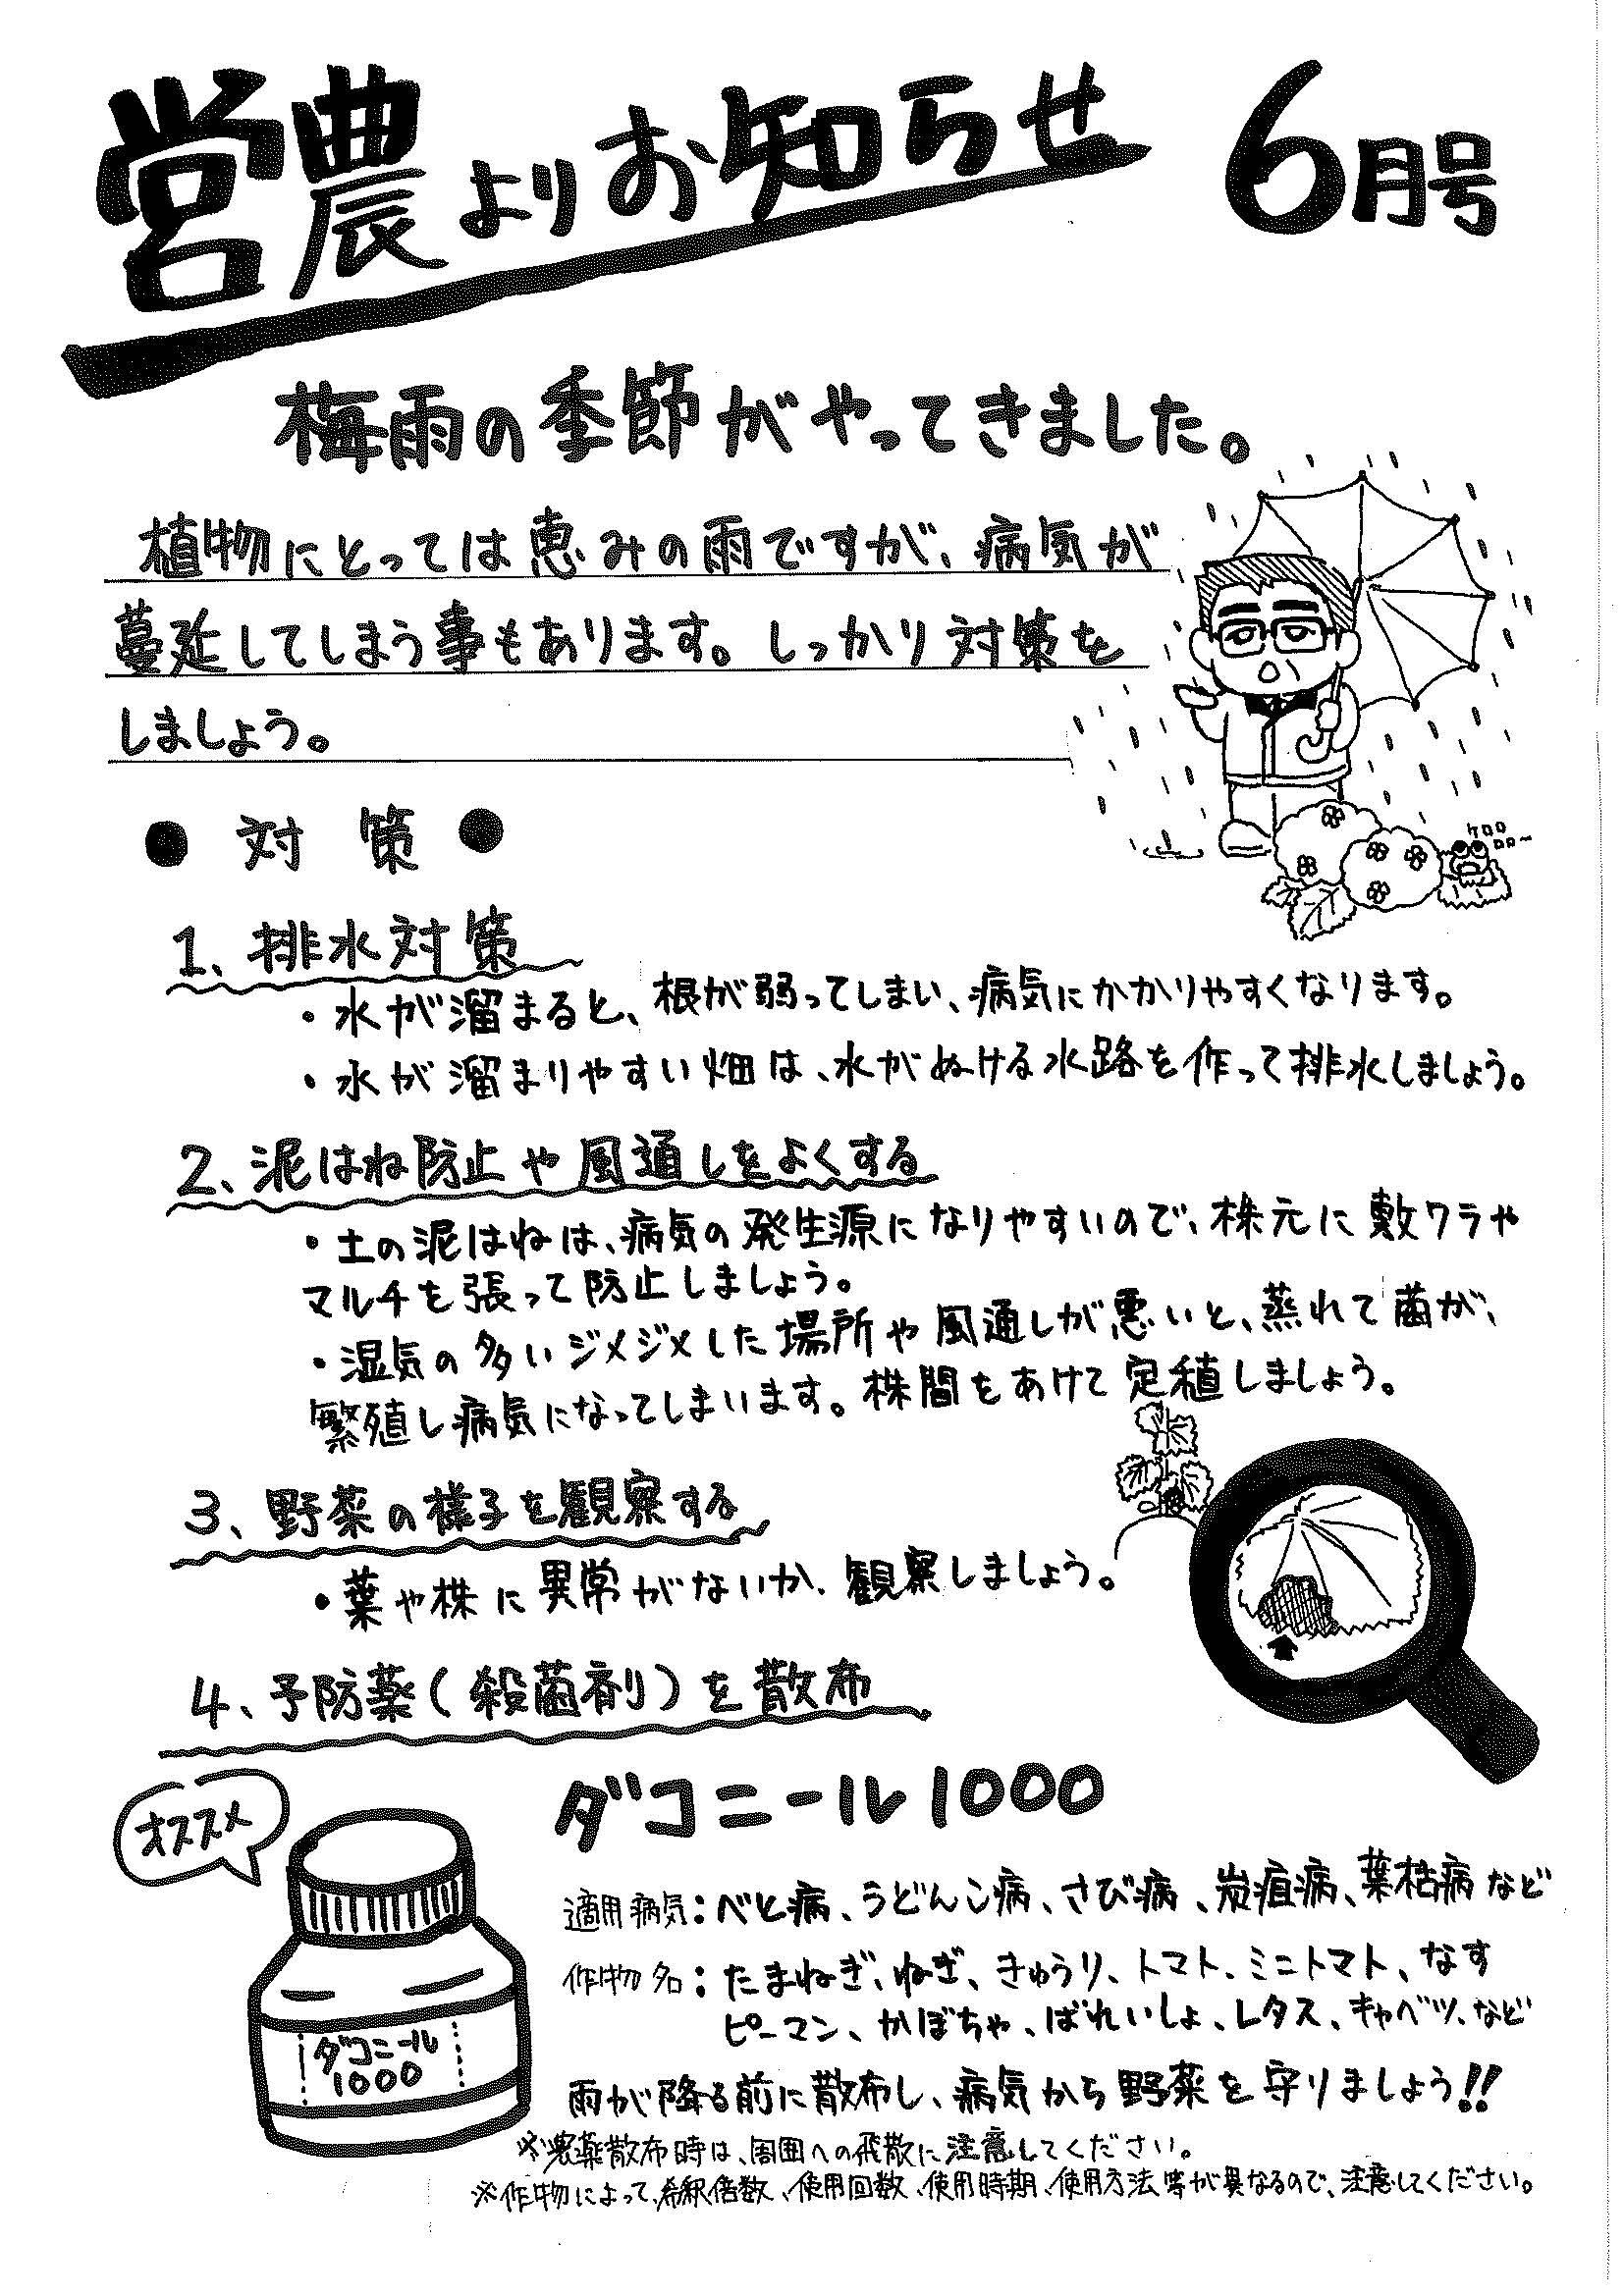 営農よりお知らせ 6月号
梅雨の季節がやってきました。
植物にとっては恵みの雨ですが、病気が
蔓延してしまう事もあります。しっかり対策を
しましょう。
ケロロ
ロロ〜
● 対 策 ●
1、排水対策
・水が溜まると、根が弱ってしまい、病気にかかりやすくなります。
・水が溜まりやすい畑は、水がぬける水路を作って排水しましょう。
2、泥はね防止や風通しをよくする
・土の泥はねは、病気の発生源になりやすいので、株元に敷ワラや
マルチを張って防止しましょう。
・湿気の多いジメジメした場所や風通しが悪いと、蒸れて菌が、
繁殖し病気になってしまいます。株間をあけて定植しましょう。
3、野菜の様子を観察する
・葉や株に異常がないか、観察しましょう。
4、予防薬(殺菌剤)を散布
オススメ
ダコニール1000
ダコニール
1000
適用病気:べと病、うどんこ病、さび病、炭疽病、葉枯病など
作物名:たまねぎ、ねぎ、きゅうり、トマト、ミニトマト、なす
ピーマン、かぼちゃ、ばれいしょ、レタス、キャベツ、など
雨が降る前に散布し、病気から野菜を守りましょう!!
※農薬散布時は、周囲への飛散に注意してください。
※作物によって、希釈倍数、使用回数、使用時期、使用方法等が異なるので、注意してください。